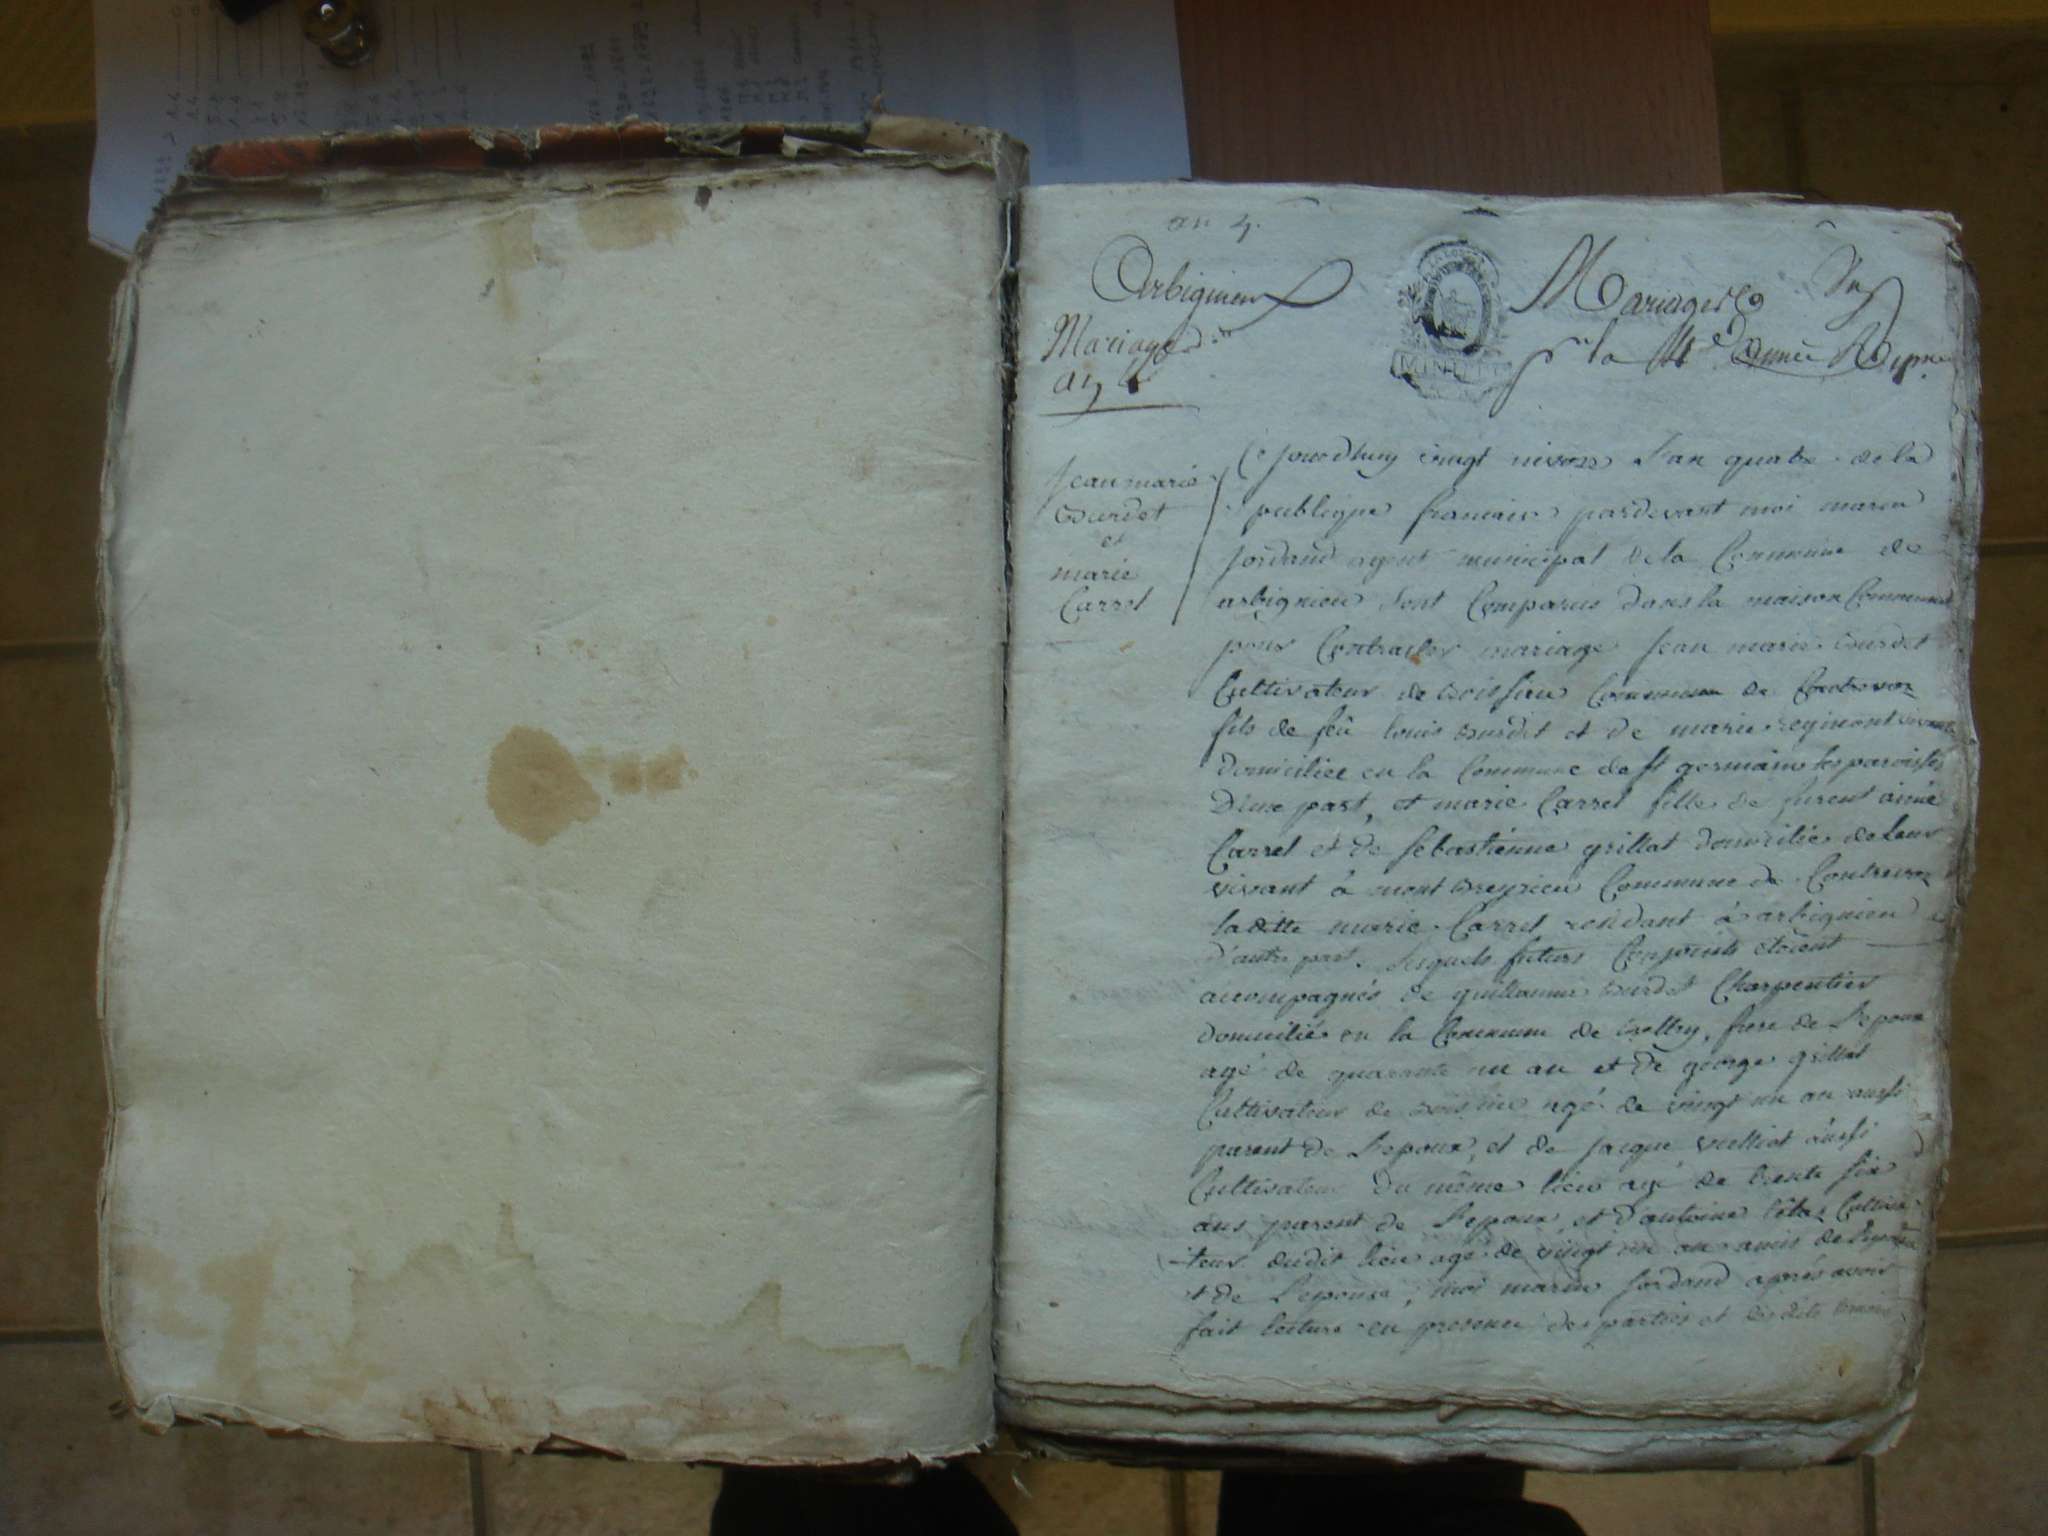 an 4.
Arbignieu
Mariages
an 4
Mariages
pr la 4e année Repne
Jean marie
Burdet
et
marie
Carrel
Ce jourdhuy vingt nivose l'an quatre de la
publique francaise pardevant moi marin
Jordand agent municipal de la Commune de
arbignieu sont Comparus dans la maison Commune
pour Contracter mariage Jean marie Burdet
Cultivateur de boissieu Commune de Contrevoz
fils de feû louis Burdet et de marie reymont vivante
domiciliée en la Commune de st germain les paroisses
D'une part, et marie Carrel fille de furent aimé
Carrel et de sebastienne grillat domiciliés de leur
vivant à mont Breyzieu Commune de Contrevoz
laditte marie Carrel residant à arbignieu
d'autre part. lesquels futurs Conjoints étoient
accompagnés de guillaume Burdet Charpentier
domicilié en la Commune de belley, frere de l'epoux
agé de quarante un an et de george grillat
Cultivateur de boissieu agé de vingt un an aussi
parent de l'epoux, et de jacque vuilliot aussi
Cultivateur du même lieu agé de trente six
ans parent de l'epoux, et d'antoine Cultiva
-teur dudit lieu agé de vingt un an amis de l'epoux
et de l'epouse, moi marin Jordand aprés avoir
fait lecture en presence des parties et les dits temoins